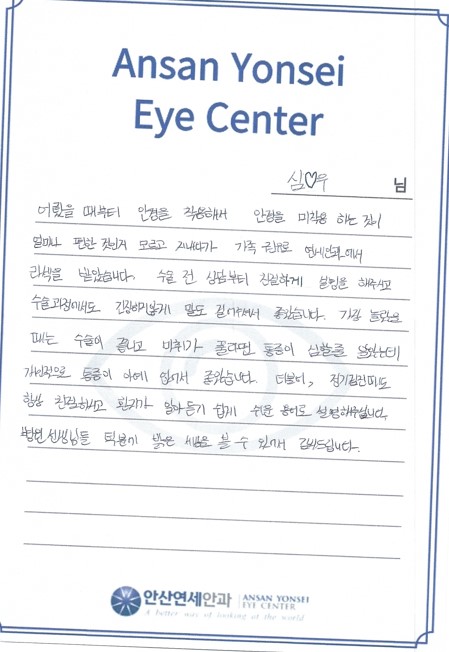 Ansan Yonsei
Eye Center
심♡우 님
어렸을 때부터 안경을 착용해서 안경을 미착용 하는 것이
얼마나 편한 것인지 모르고 지내다가 가족 소개로 연세안과에서
라섹을 받았습니다. 수술 전 상담부터 친절하게 설명을 해주시고
수술과정에서도 긴장하지않게 말도 걸어주셔서 좋았습니다. 가장 놀랐을
때는 수술이 끝나고 마취가 풀리면 통증이 심할줄 알았는데
개인적으로 통증이 아예 없어서 좋았습니다. 더불어, 정기검진때도
항상 친절하시고 환자가 알아 듣기 쉽게 쉬운 용어로 설명해주십니다.
병원 선생님들 덕분에 밝은 세상을 볼 수 있어서 감사드립니다.
안산연세안과 ANSAN YONSEI
EYE CENTER
A better way of looking at the world